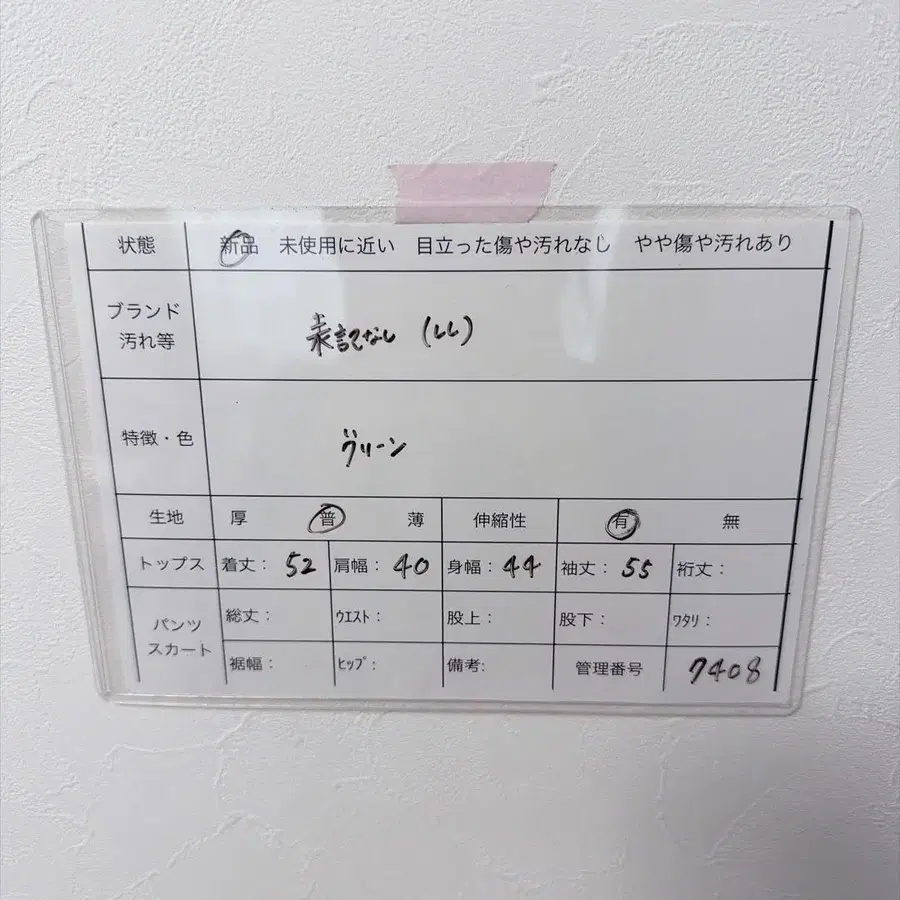 状態 新品 未使用に近い 目立った傷や汚れなし やや傷や汚れあり
ブランド
汚れ等
表記なし (LL)
特徴・色 グリーン
生地 厚 普 薄 伸縮性 有 無
トップス 着丈: 52 肩幅: 40 身幅: 44 袖丈: 55 裄丈:
パンツ
スカート
総丈: ウエスト: 股上: 股下: ワタリ:
裾幅: ヒップ: 備考: 管理番号 7408